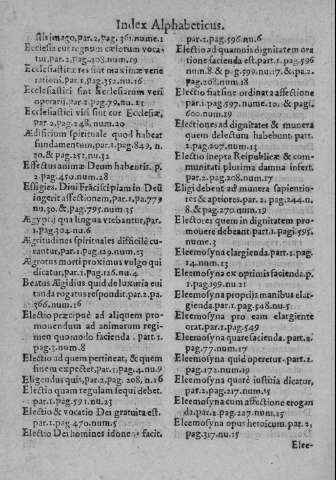 Index Alphabeticus.
stissimago, par.2, pag.361.nume.1
Ecclesia cur regnum cælorum vocatur, par.2. pag.403. num.19
Ecclesiasticæ res sunt maximæ venerationi, par.1. pag.176.nu.1
Ecclesiastici sint Ecclesiarum veri operarij, par.1 pag.79, nu.23
Ecclesiastici viri sint cor Ecclesiæ, par.2, pag.248, num.29
Ædificium spirituale quod habeat fundamentum, par.1.pag.849, n.30. & pag.251, nu.32
Effectus animæ Deum habentis. p.2. pag.450. num.28
Effigies. Divi Frãcisci piam in Deũ ingerit affectionem, par.1, pa.779 nu.30. &, pag.795. num 35
Ægyptij qua lingua vtebantur, par.1 pag.304.nu.6
Ægritudines spirituales difficile curantur, par.1. pag.129.num.23
Ægrotus morti proximus vulgo qui dicatur, par.1. pag.126, nu.4
Beatus Ægidius quid de luxuria euitanda rogatus respondit. par.2. pa.366. num.16
Electio præcipuè ad aliquem promouendum ad animarum regimen quomodo facienda. part.1. pag.3. num.8
Electio ad quem pertineat, & quem finem expectet, par.1. pag.4. nu.9
Eligendus quis, par.2, pag.208, n.16
Electio quam regulam sequi debet. par.1. pag.591, nu.23
Electio & vocatio Dei gratuita est. par.1 pag.470. num.5
Electio Dei homines idoneos facit.
par.1. pag.596. nu.6
Electio ad quamuis dignitatem oratione facienda est. part.1. pag.596 num.8. & pag.599. nu.17. & pa.2. pag.208. num.18
Electio fiat sine ordinata affectione par.1. pag.597. nume.10. & pagi.600. num.29
Electione ad dignitates & munera quem delectum habebunt part.2. pag.207. num.13
Electio inepta Reipublicæ & communitati plurima damna infert. par.2. pag.208. num.17
Eligi debent ad munera sapientiores & aptiores, par.2. pag.244. n.8. & pag.270. num.19
Electores quem in dignitatem promouere debeant. part.1. pagi.595, nume.3
Eleemosyna elargienda. part.1. pag.24. num.13
Eleemosyna ex optimis facienda. p.1. pag.199. nu.21
Eleemosyna proprijs manibus elargienda. par.1. pag.548. nu.5
Eleemosyna pro eam elargiente orat. par.1. pag.549
Eleemosyna quare facienda. part.2. pag.77. num.17
Eleemosyna quid operetur. part.2. pag.172. num.19
Eleemosyna quare iustitia dicatur, par.2. pag.217. num.15
Eleemosyna cum affectione eroganda. par.2. pag.227. num.15
Eleemosyna opus heroicum. par.2, pag.317. nu.15
Elee-